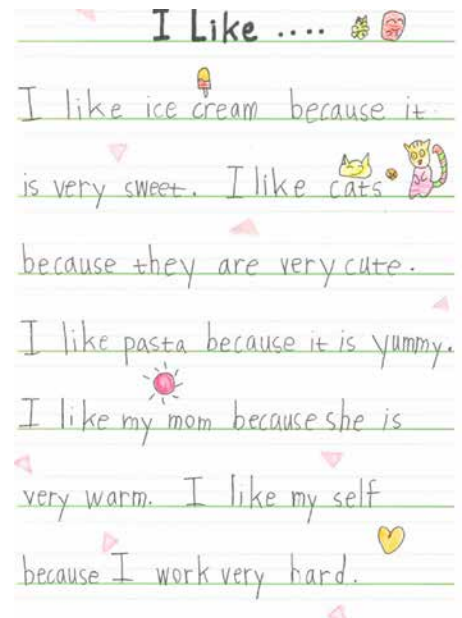 I Like ....
I like ice cream because it
is very sweet. I like cats
because they are very cute.
I like pasta because it is yummy.
I like my mom because she is
very warm. I like my self
because I work very hard.